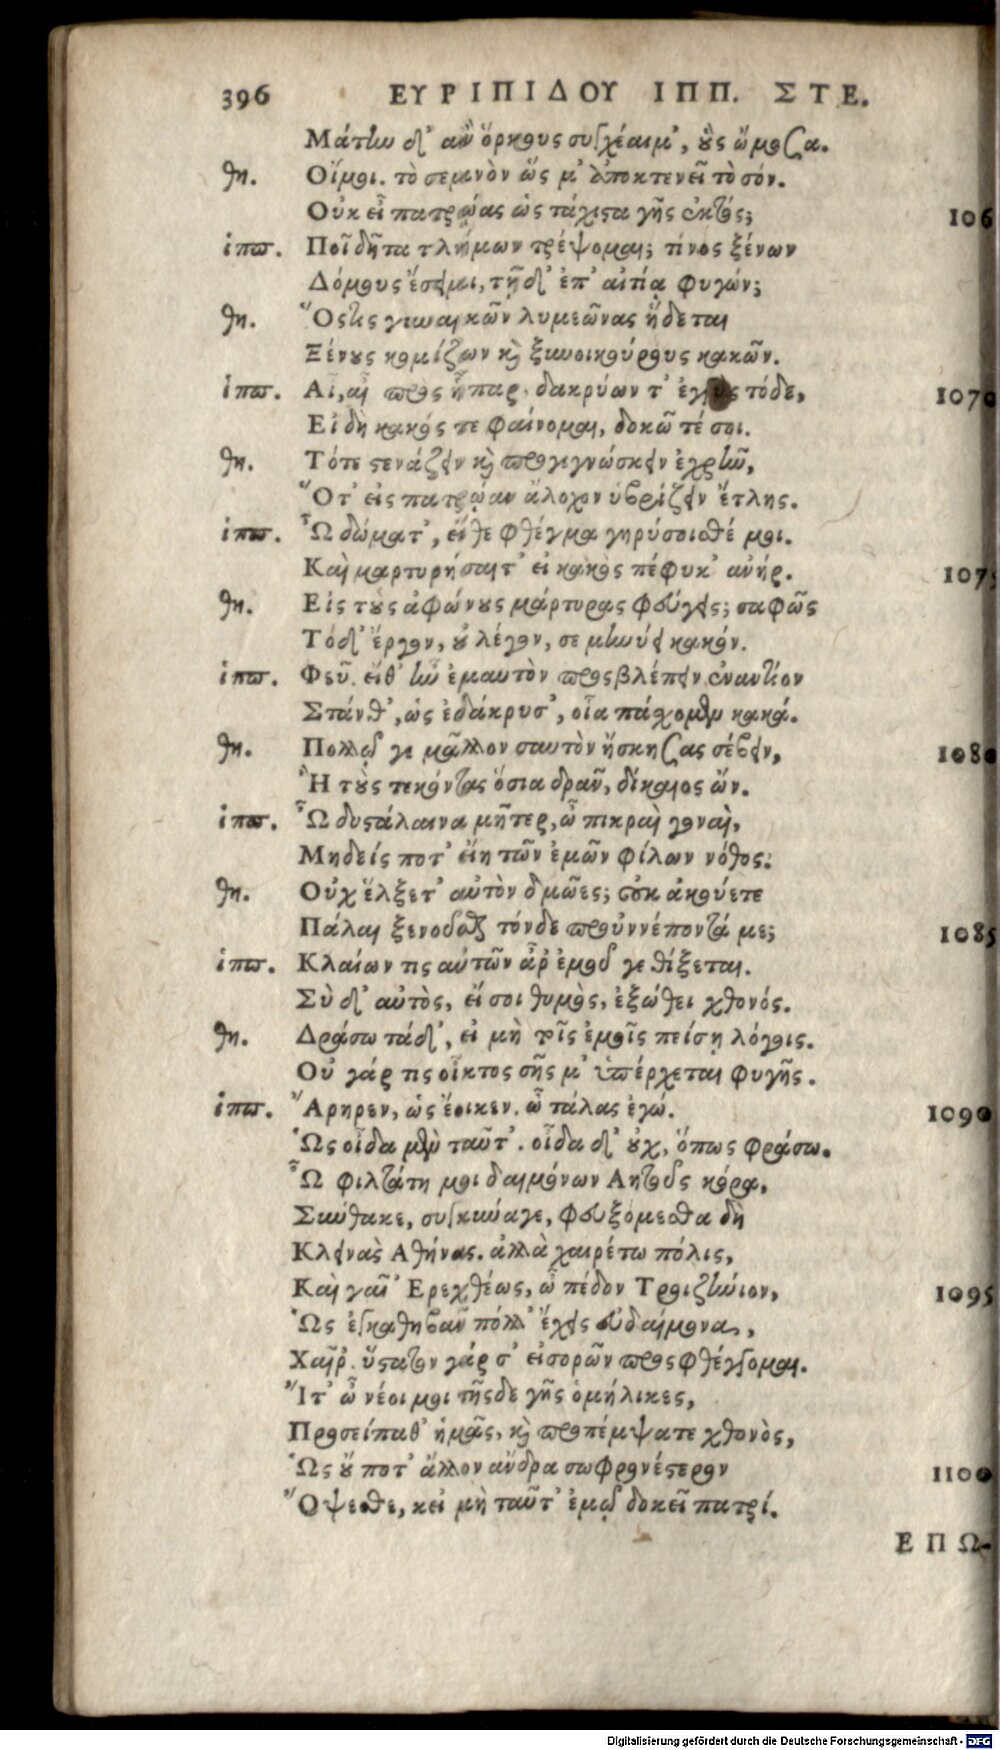 396 ΕΥΡΙΠΙΔΟΥ ΙΠΠ. ΣΤΕ.
Μάτην δ' ἂν ὅρκους συγχέαιμ', οὓς ὤμοσα.
θη. Οἴμοι. τὸ σεμνὸν ὥς μ' ἀποκτενεῖ τὸ σόν.
Οὐκ εἶ πατρῴας ὡς τάχιστα γῆς ἐκτός; 106
ἱππ. Ποῖ δῆτα τλήμων τρέψομαι; τίνος ξένων
Δόμους ἔσειμι, τῇδ' ἐπ' αἰτίᾳ φυγών;
θη. Ὅστις γυναικῶν λυμεῶνας ἥδεται
Ξένους κομίζων καὶ ξυνοικούρους κακῶν.
ἱππ. Αἲ, αἲ πρὸς ἧπαρ. δακρύων τ' ἐγγὺς τόδε, 1070
Εἰ δὴ κακός τε φαίνομαι, δοκῶ τέ σοι.
θη. Τότε στενάζειν καὶ προγιγνώσκειν ἐχρῆν,
Ὅτ' εἰς πατρῴαν ἄλοχον ὑβρίζειν ἔτλης.
ἱππ. Ὦ δώματ', εἴθε φθέγμα γηρύσοισθέ μοι.
Καὶ μαρτυρήσαιτ' εἰ κακὸς πέφυκ' ἀνήρ. 1075
θη. Εἰς τοὺς ἀφώνους μάρτυρας φεύγεις; σαφῶς
Τόδ' ἔργον, οὐ λέγον, σε μηνύει κακόν.
ἱππ. Φεῦ. εἴθ' ἦν ἐμαυτὸν προςβλέπειν ἐναντίον
Στάνθ', ὡς ἐδάκρυσ', οἷα πάσχομεν κακά.
θη. Πολλῷ γε μᾶλλον σαυτὸν ἤσκησας σέβειν, 1080
Ἢ τοὺς τεκόντας ὅσια δρᾶν, δίκαιος ὤν.
ἱππ. Ὦ δυστάλαινα μῆτερ, ὦ πικραὶ γοναὶ,
Μηδείς ποτ' εἴη τῶν ἐμῶν φίλων νόθος.
θη. Οὐχ ἕλξετ' αὐτὸν δμῶες; οὐκ ἀκούετε
Πάλαι ξενοῦσθαι τόνδε προὐννέποντά με; 1085
ἱππ. Κλαίων τις αὐτῶν ἆρ' ἐμοῦ γε θίξεται.
Σὺ δ' αὐτὸς, εἴ σοι θυμὸς, ἐξώθει χθονός.
θη. Δράσω τάδ', εἰ μὴ τοῖς ἐμοῖς πείσῃ λόγοις.
Οὐ γάρ τις οἶκτος σῆς μ' ὑπέρχεται φυγῆς.
ἱππ. Ἄρηρεν, ὡς ἔοικεν. ὦ τάλας ἐγώ. 1090
Ὡς οἶδα μὲν ταῦτ'. οἶδα δ' οὐχ, ὅπως φράσω.
Ὦ φιλτάτη μοι δαιμόνων Λητοῦς κόρα,
Σύνθακε, συγκύναγε, φευξόμεσθα δὴ
Κλεινὰς Ἀθήνας. ἀλλὰ χαιρέτω πόλις,
Καὶ γαῖ' Ἐρεχθέως, ὦ πέδον Τροιζήνιον, 1095
Ὡς ἐγκαθηβᾶν πόλλ' ἔχεις εὐδαίμονα,
Χαῖρ'. ὕστατον γάρ σ' εἰσορῶν προςφθέγγομαι.
Ἴτ' ὦ νέοι μοι τῆςδε γῆς ὁμήλικες,
Προσείπαθ' ἡμᾶς, καὶ προπέμψατε χθονὸς,
Ὡς οὔ ποτ' ἄλλον ἄνδρα σωφρονέστερον 1100
Ὄψεσθε, κεἰ μὴ ταῦτ' ἐμῷ δοκεῖ πατρί.
ΕΠΩ-
Digitalisierung gefördert durch die Deutsche Forschungsgemeinschaft - DFG